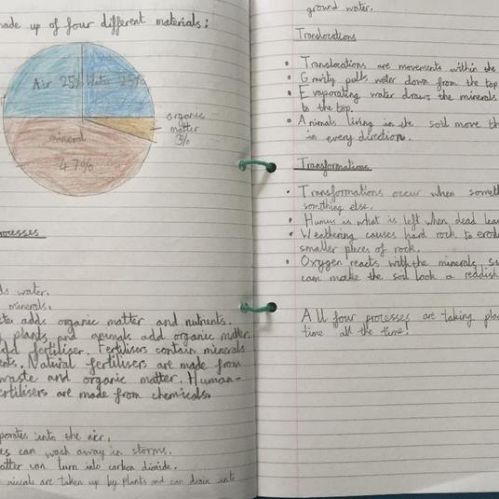 made up of four different materials:
Air 25% Water 25%
organic
matter
3%
mineral
47%
Processes
water.
minerals.
adds organic matter and nutrients.
plants and animals add organic matter.
add fertiliser. Fertilisers contain minerals
Natural fertilisers are made from
waste and organic matter. Human-
fertilisers are made from chemicals.
into the air.
can wash away in storms.
matter can turn into carbon dioxide.
are taken up by plants and can drain into
ground water.
Translocations
• Translocations are movements within the
• Gravity pulls water down from the top
• Evaporating water draws the minerals
to the top.
• Animals living in the soil move th
in every direction.
Transformations
• Transformations occur when somet
something else.
• Humus is what is left when dead lea
• Weathering causes hard rock to erod
smaller pieces of rock.
• Oxygen reacts with the minerals, su
can make the soil look a reddish
All four processes are taking pla
time all the time!